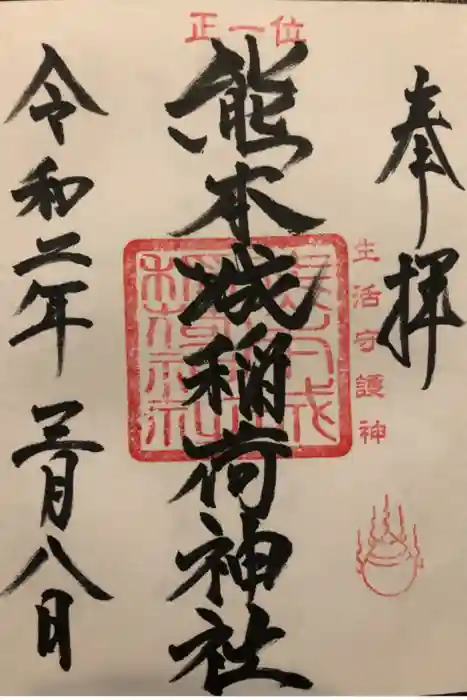 奉拝
生活守護神
正一位
熊本城稲荷神社
令和二年三月八日